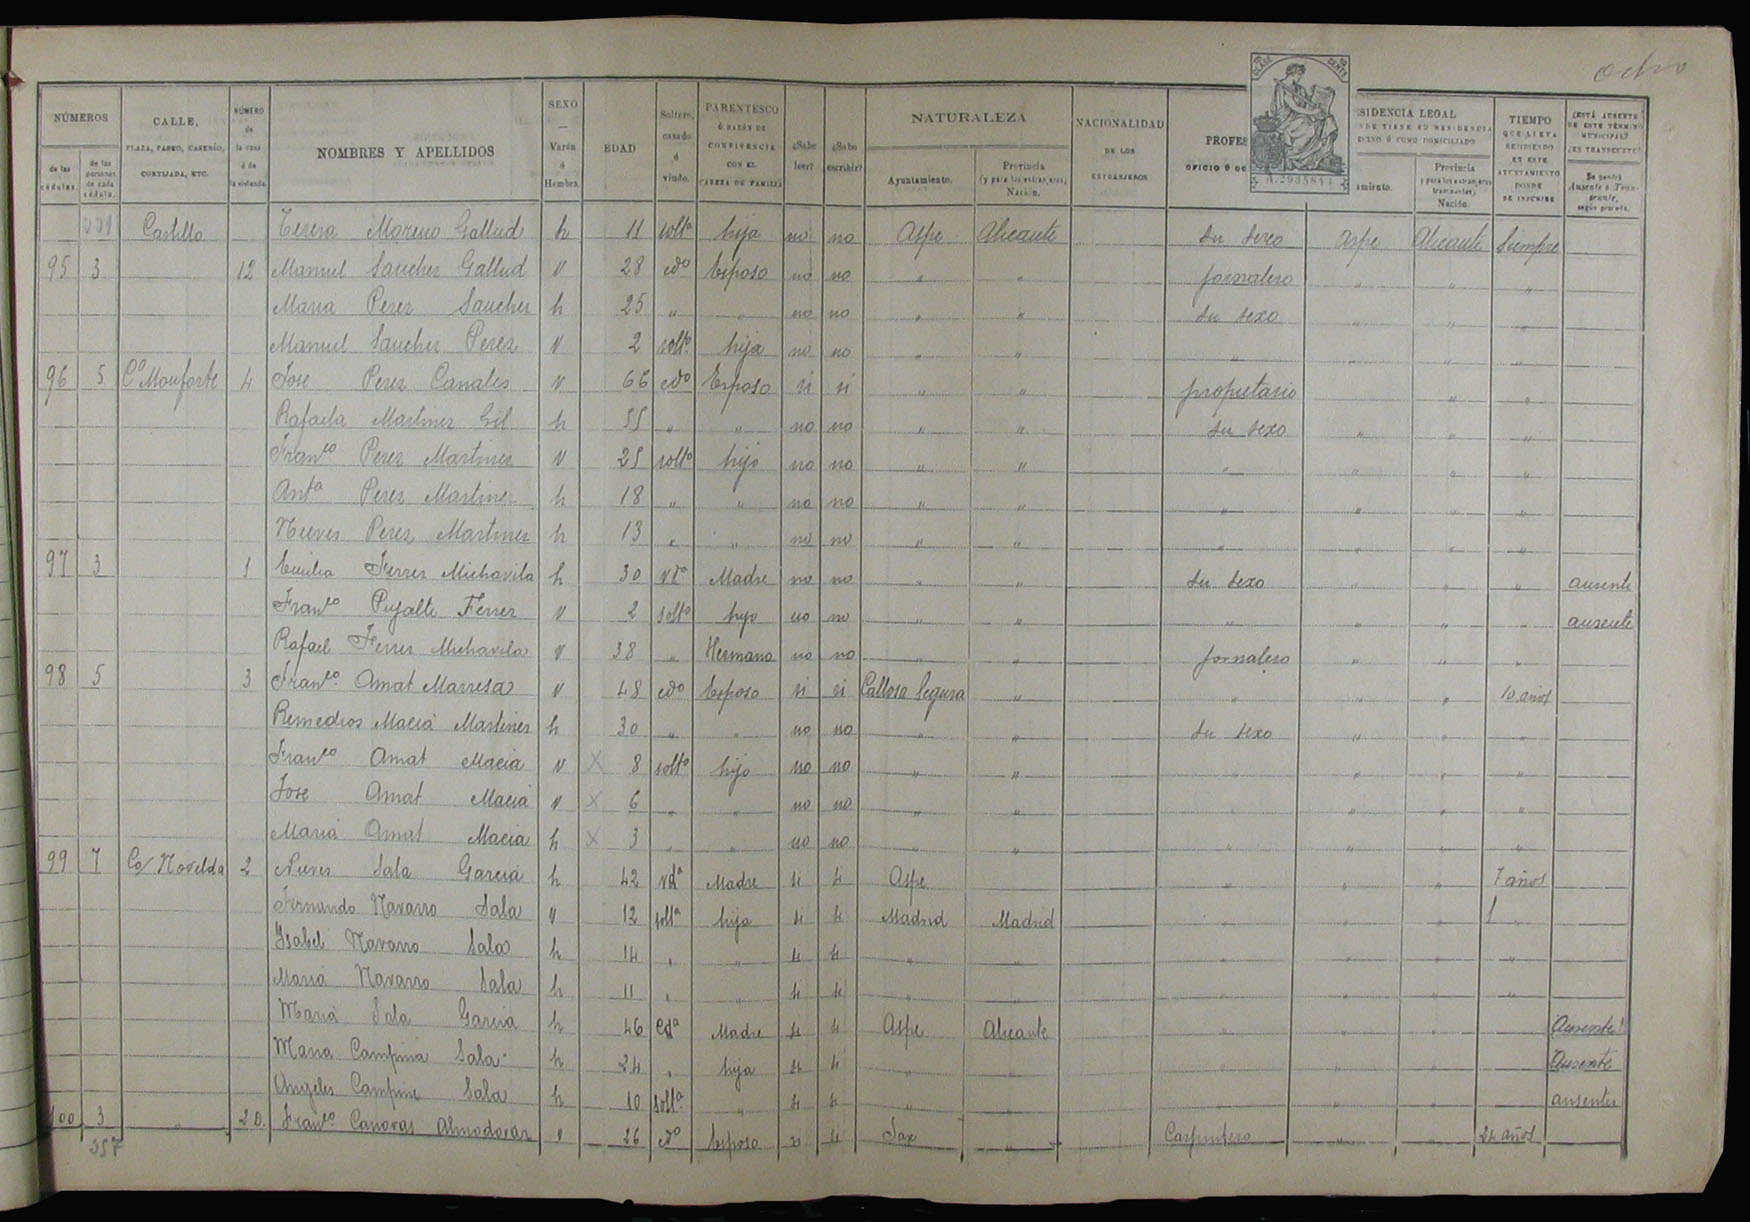 Octvo
NÚMEROS
de las cédulas.
de las personas de cada cédula.
CALLE,
PLAZA, PASEO, CASERÍO, CORTIJADA, ETC.
NÚMERO de la casa ó de la vivienda
NOMBRES Y APELLIDOS
SEXO — Varón ó Hembra
EDAD
Soltero, casado ó viudo.
PARENTESCO Ó RAZÓN DE CONVIVENCIA CON EL CABEZA DE FAMILIA
¿Sabe leer?
¿Sabe escribir?
NATURALEZA
Ayuntamiento.
Provincia (y para los extranjeros) Nación.
NACIONALIDAD DE LOS EXTRANJEROS
PROFES
OFICIO Ó OC
CLASE CENTS
A.2935841
SIDENCIA LEGAL
NDE TIENE SU RESIDENCIA
CINO Ó COMO DOMICILIADO
amiento.
Provincia y para los extranjeros transeuntes) Nación.
TIEMPO QUE LLEVA RESIDIENDO EN ESTE AYUNTAMIENTO DONDE SE INSCRIBE
¿ESTÁ AUSENTE DE ESTE TÉRMINO MUNICIPAL? ¿ES TRANSEUNTE?
Se pondrá Ausente ó Transeunte, según proceda.
Castillo Teresa Moreno Gallud h 11 solta hija no no Aspe Alicante su sexo Aspe Alicante Siempre
95 3 12 Manuel Sanchez Gallud v 28 cdo Esposo no no " " jornalero " " "
Maria Perez Sanchez h 25 " " no no " " su sexo " " "
Manuel Sanchez Perez v 2 solto hijo no no " " " " " "
96 5 Co Monforte 4 Jose Perez Canales v 66 cdo Esposo si si " " propietario " "
Rafaela Martinez Gil h 55 " " no no " " su sexo " " "
Franco Perez Martinez v 25 solto hijo no no " " " " " "
Anta Perez Martinez h 18 " " no no " " " " " "
Nieves Perez Martinez h 13 " " no no " " " " " "
97 3 1 Emilia Ferrer Michavila h 30 vda Madre no no " " su sexo " " " ausente
Franco Pujalte Ferrer v 2 solto hijo no no " " " " " " ausente
Rafael Ferrer Michavila v 38 " Hermano no no " " jornalero " " "
98 5 3 Franco Amat Marresa v 48 cdo Esposo si si Callosa Segura " " " " 10 años
Remedios Macia Martinez h 30 " " no no " " su sexo " " "
Franco Amat Macia v X 8 solto hijo no no " " " " " "
Jose Amat Macia v X 6 " " no no " " " " " "
Maria Amat Macia h X 3 " " no no " " " " " "
99 7 Co/ Novelda 2 Nieves Sala Garcia h 42 vda Madre si si Aspe " " " 7 años
Fernando Navarro Sala v 12 solta hija si si Madrid Madrid " " "
Isabel Navarro Sala h 14 " " si si " " " " " "
Maria Navarro Sala h 11 " " si si " " " " " "
Maria Sala Garcia h 46 cda Madre si si Aspe Alicante " " " Ausente
Maria Campina Sala h 24 " hija si si " " " " " Ausente
Angeles Campine Sala h 10 solta " si si " " " " ausentes
100 3 " 2 D. Franco Canovas Almodovar v 26 cdo Esposo si si Sax " Carpintero " " 24 años
357